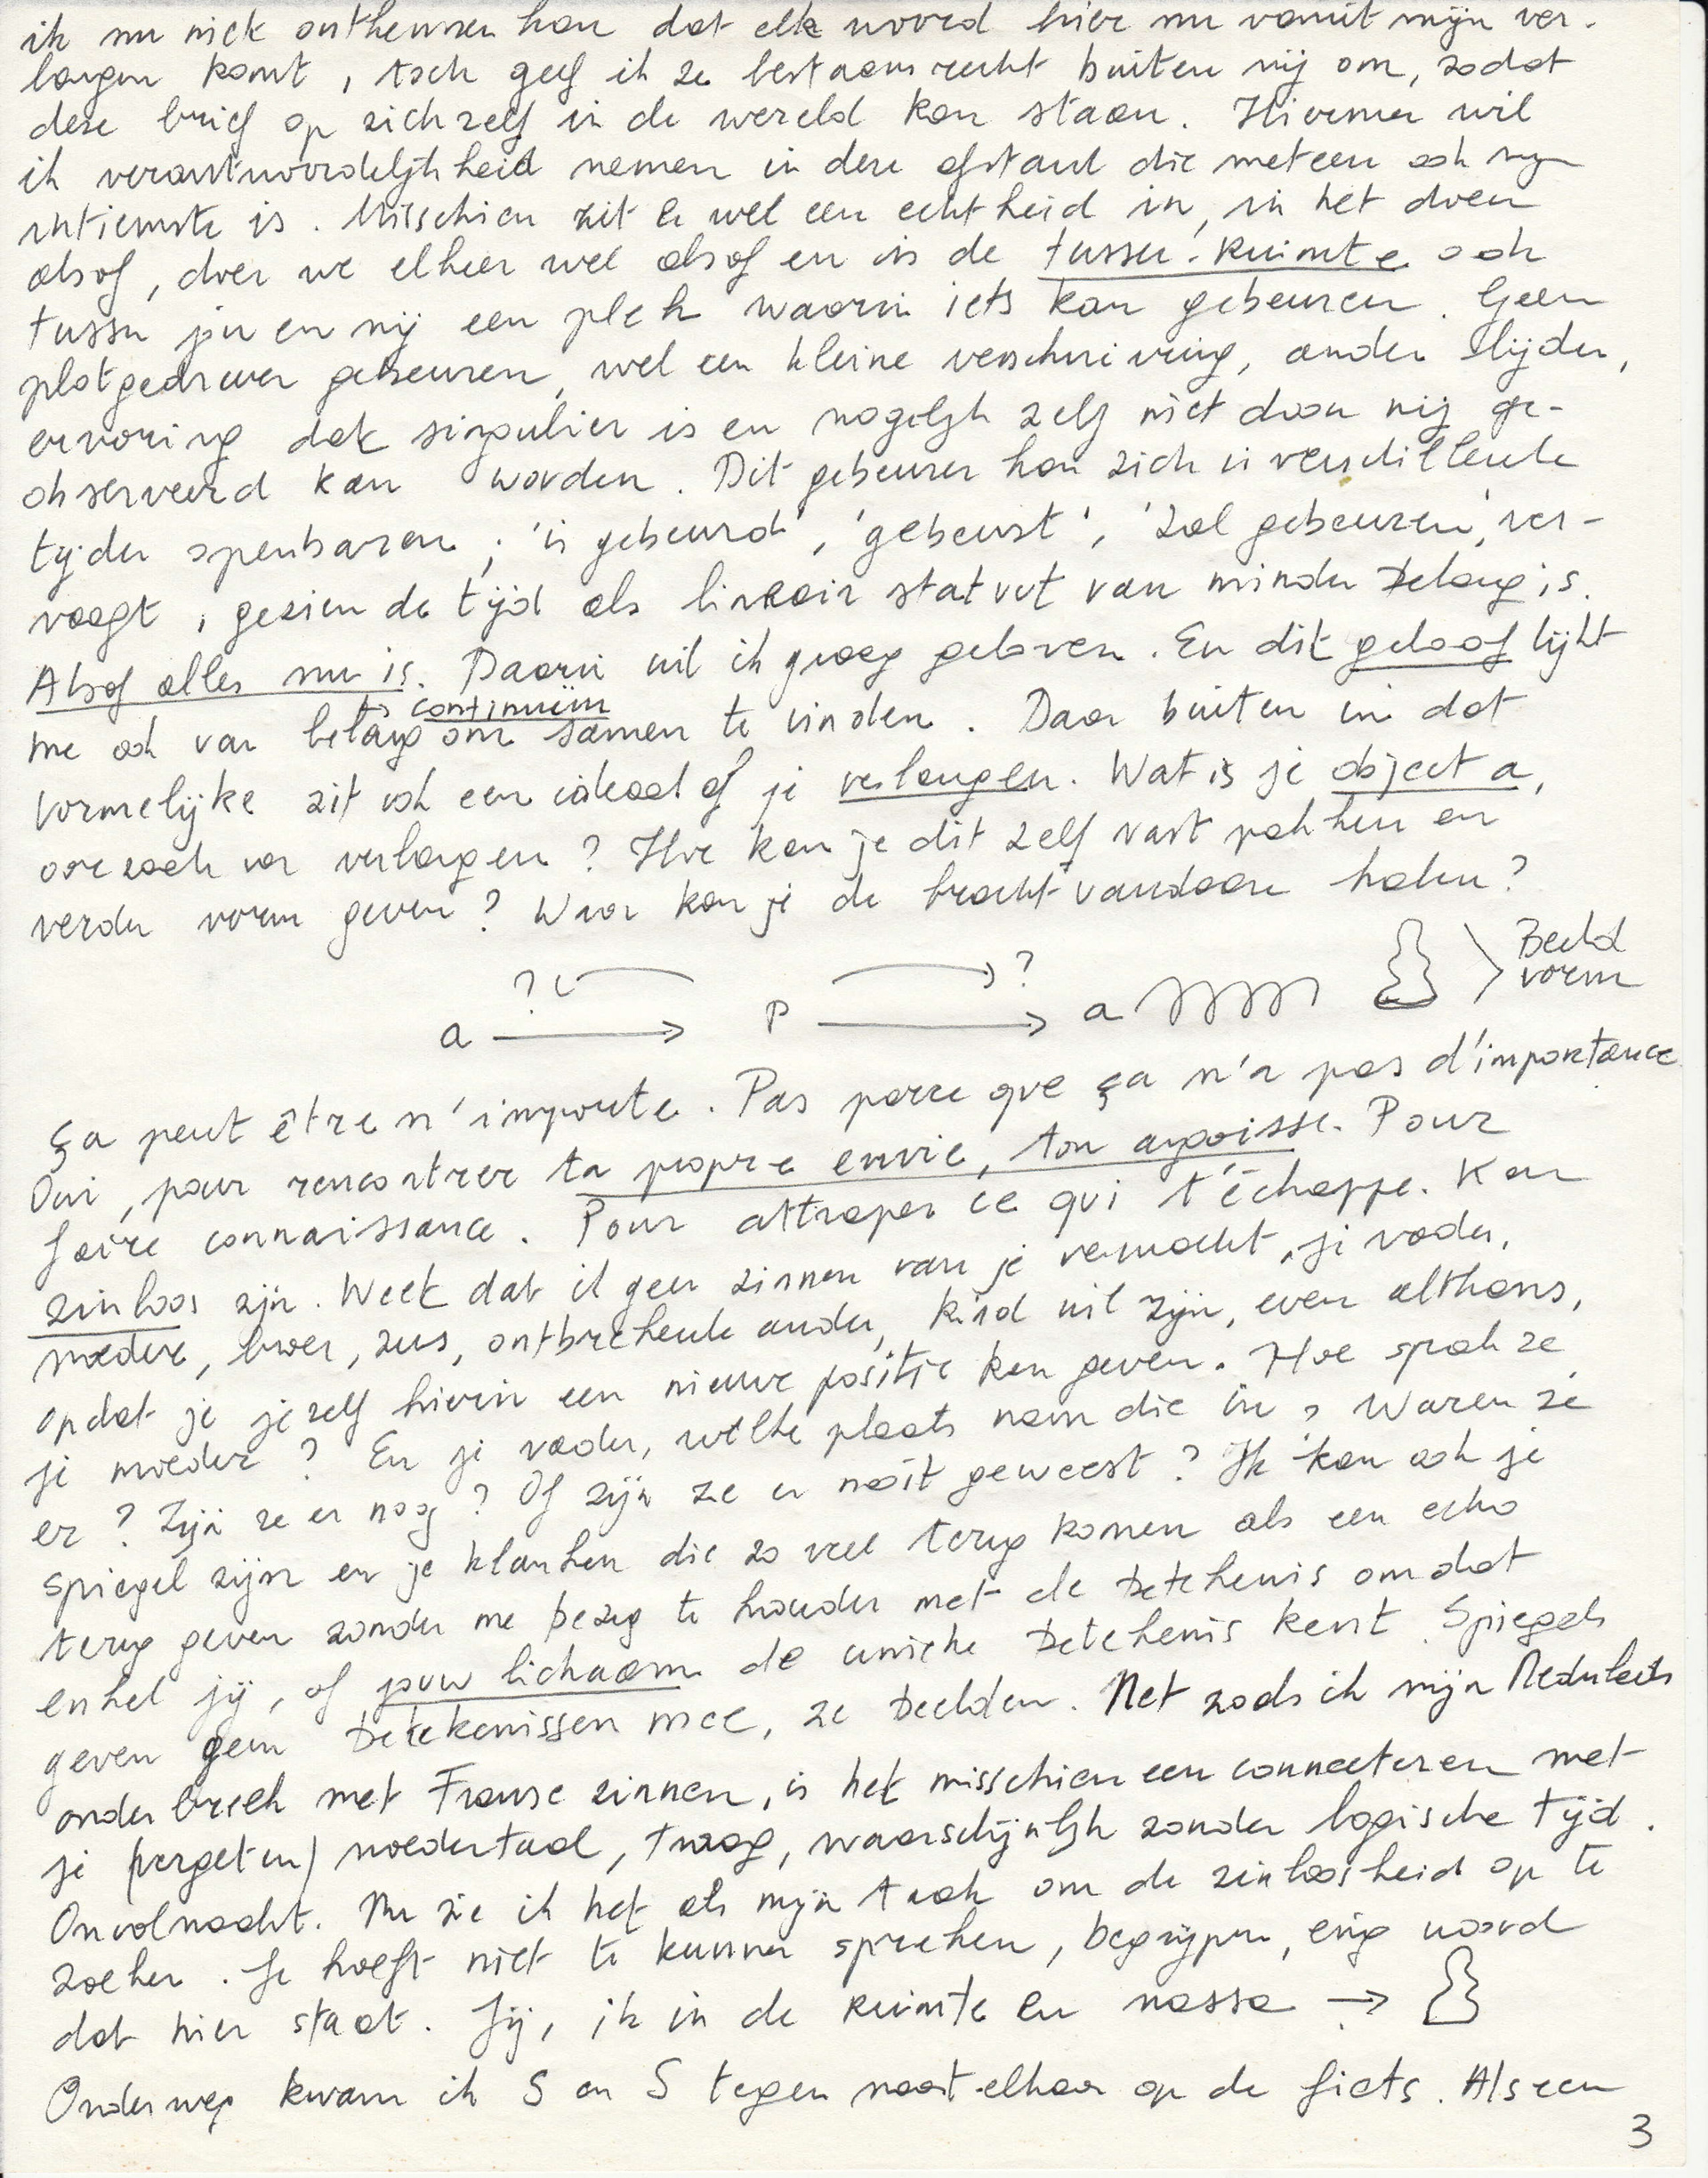 ik nu niet ontkennen kan dat elk woord hier nu vanuit mijn ver-
langen komt, toch geef ik ze bestaansrecht buiten mij om, zodat
deze brief op zichzelf in de wereld kan staan. Hiermee wil
ik verantwoordelijkheid nemen in deze afstand die meteen ook mijn
intiemste is. Misschien zit er wel een echtheid in, in het doen
alsof, doen we elkeer wel alsof en is de tussen-ruimte ook
tussen jou en mij een plek waarin iets kan gebeuren. Geen
plotgedreven gebeuren, wel een kleine verschuiving, ander lijden,
ervaring dat singulier is en mogelijk zelf niet door mij ge-
observeerd kan worden. Dit gebeuren kan zich in verschillende
tijden openbaren; 'is gebeurd', 'gebeurt', 'zal gebeuren', ver-
voegt, gezien de tijd als lineair statuut van minder belang is.
Alsof alles nu is. Daarin wil ik graag geloven. En dit geloof lijkt
↳ continuüm
me ook van belang om samen te vinden. Daar buiten in dat
vormelijke zit ook een ideaal of je verlangen. Wat is je object a,
oorzaak van verlangen? Hoe kan je dit zelf vast pakken en
verder vorm geven? Waar kan je de kracht vandaan halen?
? ? Beeld
a → P → a vorm
Ça peut être n'importe. Pas parce que ça n'a pas d'importance
Oui, pour rencontrer ta propre envie, ton angoisse. Pour
faire connaissance. Pour attraper ce qui t'échappe. Kan
zinloos zijn. Weet dat ik geen zinnen van je verwacht, je vader,
moeder, broer, zus, ontbrekende ander, kind wil zijn, even althans,
opdat je jezelf hierin een nieuwe positie kan geven. Hoe sprak ze
je moeder? En je vader, welke plaats nam die in, waren ze
er? Zijn ze er nog? Of zijn ze er nooit geweest? Ik kan ook je
spiegel zijn en je klanken die zo veel terug komen als een echo
terug geven zonder me bezig te houden met de betekenis omdat
enkel jij, of jouw lichaam de unieke betekenis kent. Spiegels
geven geen betekenissen mee, ze beelden. Net zoals ik mijn Nederlands
onderbreek met Franse zinnen, is het misschien een connecteren met
je (vergeten) moedertaal, traag, waarschijnlijk zonder logische tijd.
Onvolmaakt. Nu zie ik het als mijn taak om de zinloosheid op te
zoeken. Je hoeft niet te kunnen spreken, begrijpen, enig woord
dat hier staat. Jij, ik in de ruimte en massa →
Onderweg kwam ik S en S tegen naast elkaar op de fiets. Als een
3